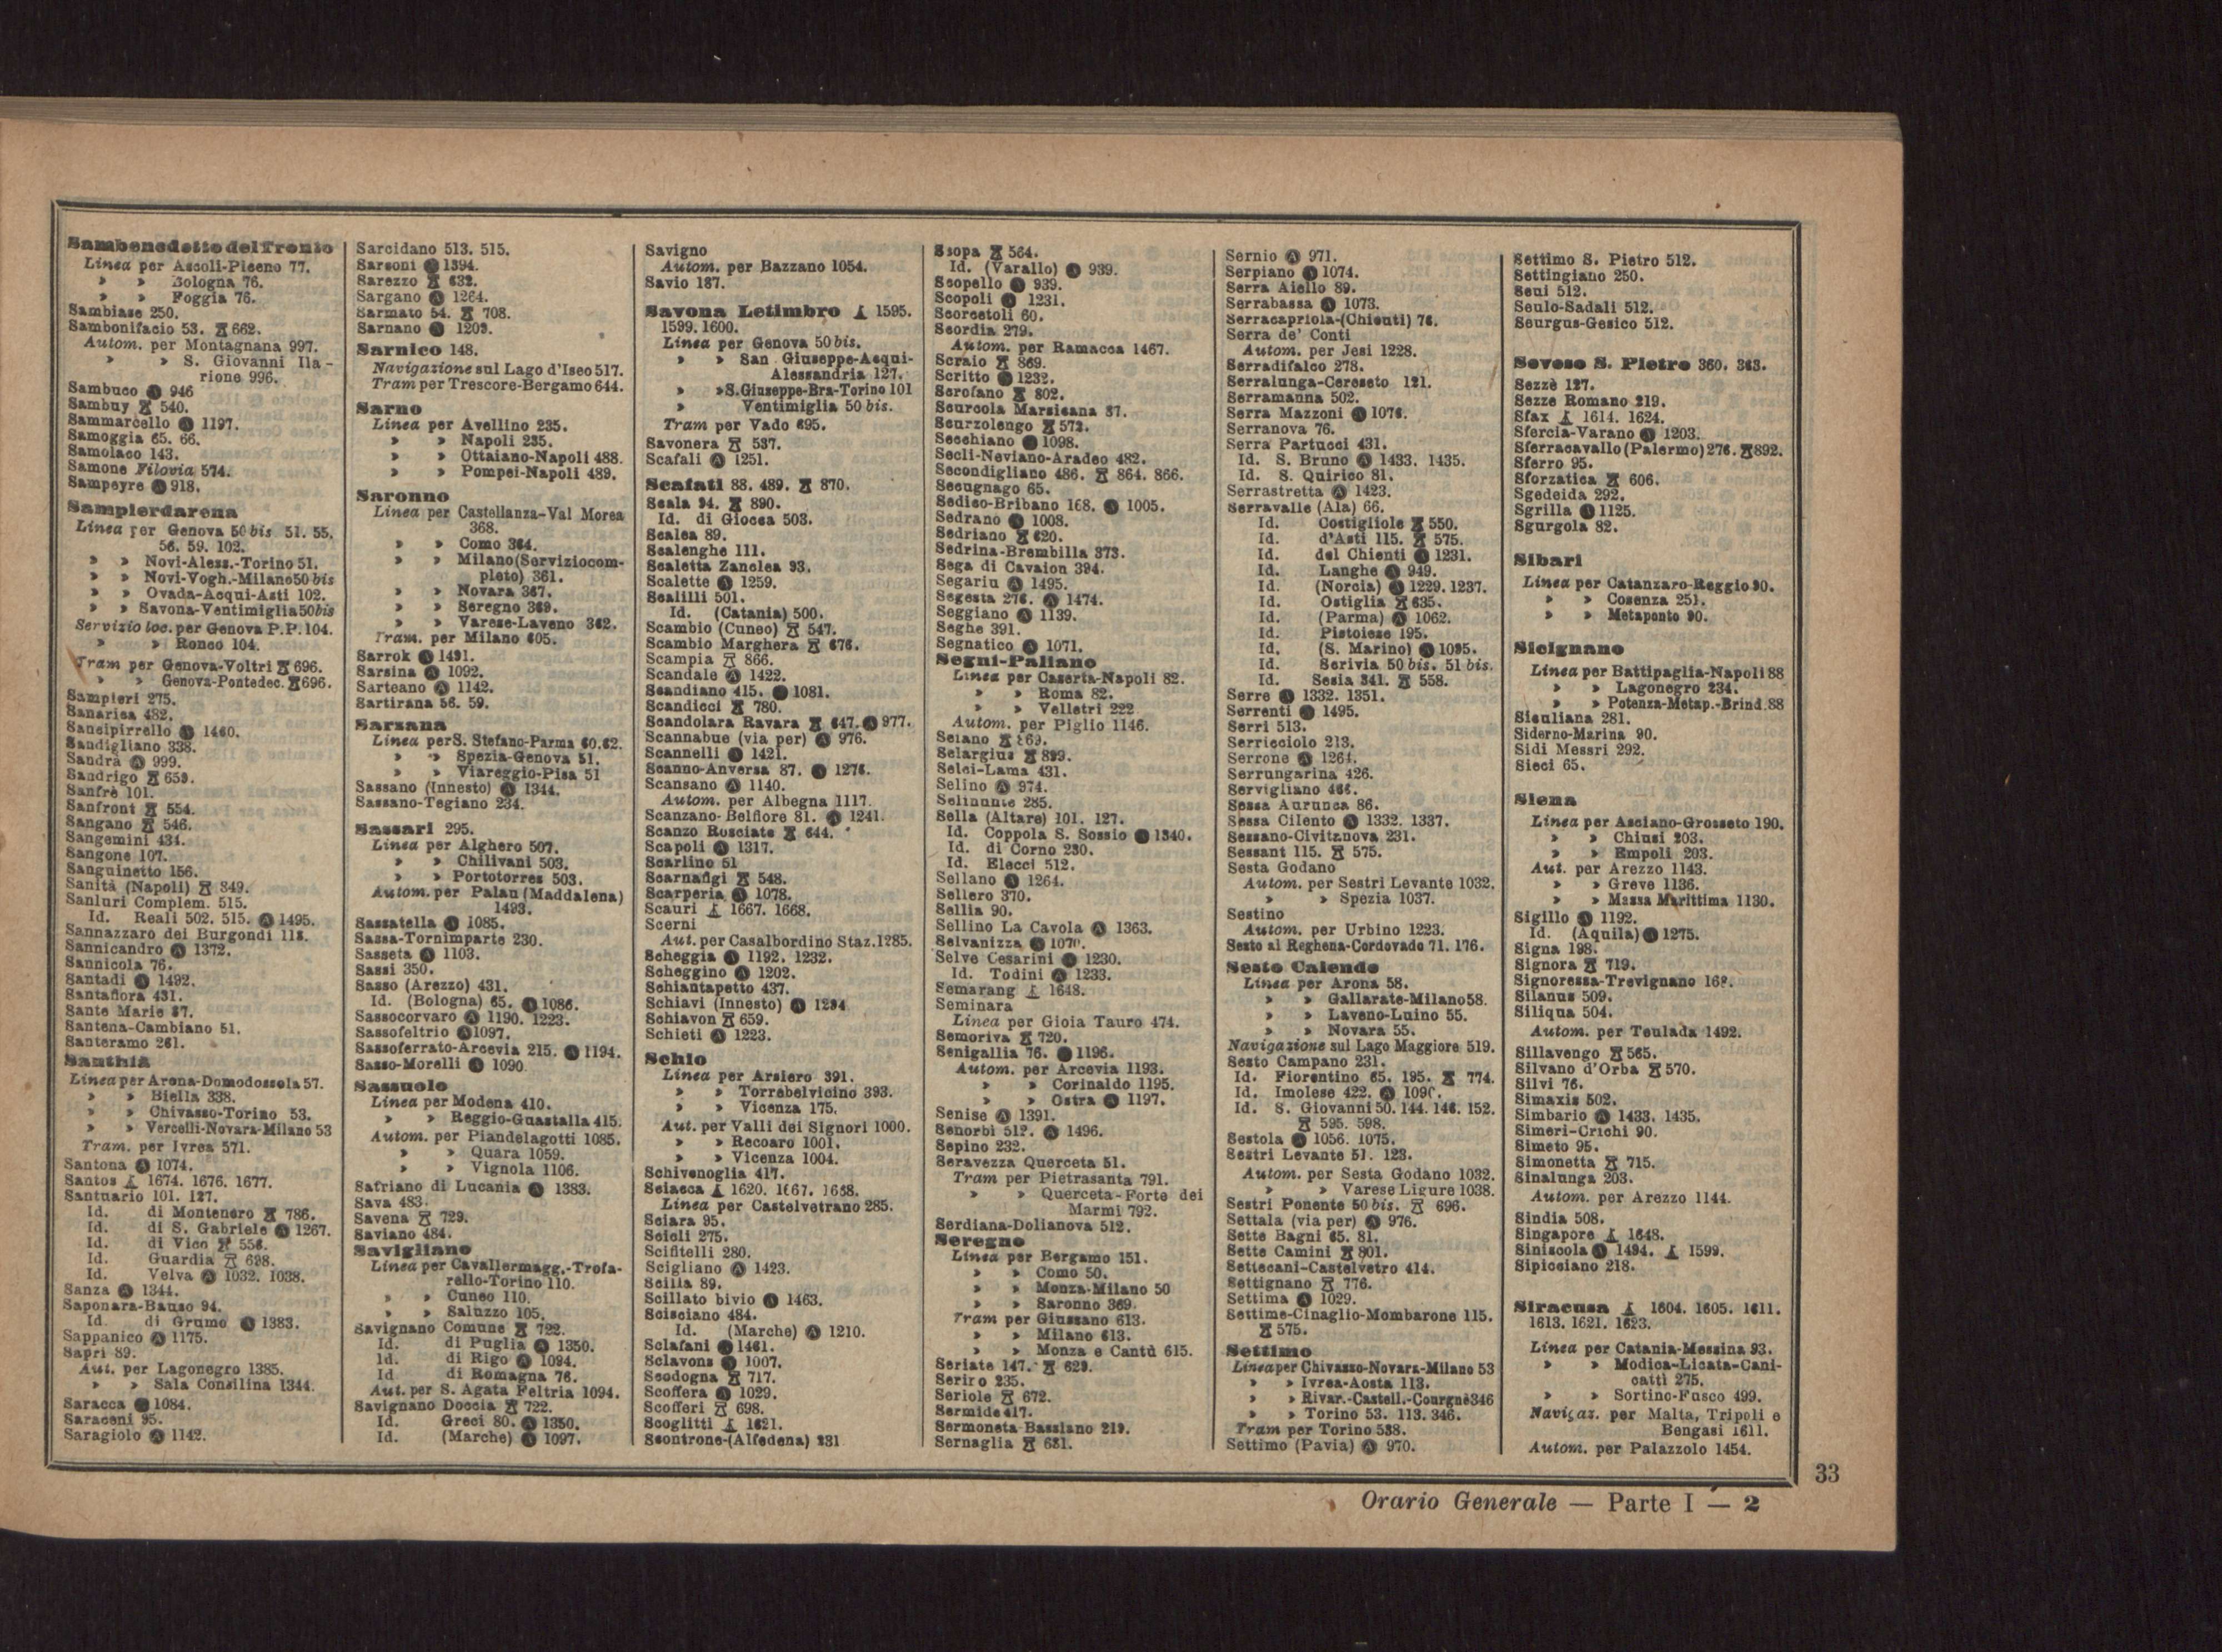 Sambenedetto del Tronto
Linea per Ascoli-Piceno 77.
» » Bologna 76.
» » Foggia 76.
Sambiase 250.
Sambonifacio 53. 662.
Autom. per Montagnana 997.
» » S. Giovanni Ila-
rione 996.
Sambuco Ⓐ 946
Sambuy 540.
Sammarcello Ⓐ 1197.
Samoggia 65. 66.
Samolaco 143.
Samone Filovia 574.
Sampeyre Ⓐ 918.
Sampierdarena
Linea per Genova 50 bis 51. 55.
56. 59. 102.
» » Novi-Aless.-Torino 51.
» » Novi-Vogh.-Milano 50 bis
» » Ovada-Acqui-Asti 102.
» » Savona-Ventimiglia 50 bis
Servizio loc. per Genova P.P. 104.
» » Ronco 104.
Tram per Genova-Voltri 696.
» » Genova-Pontedec. 696.
Sampieri 275.
Sanarica 482.
Sancipirrello Ⓐ 1460.
Sandigliano 338.
Sandrà Ⓐ 999.
Sandrigo 659.
Sanfrè 101.
Sanfront 554.
Sangano 546.
Sangemini 434.
Sangone 107.
Sanguinetto 156.
Sanità (Napoli) 849.
Sanluri Complem. 515.
Id. Reali 502. 515. Ⓐ 1495.
Sannazzaro dei Burgondi 118.
Sannicandro Ⓐ 1372.
Sannicola 76.
Santadi Ⓐ 1492.
Santafiora 431.
Sante Marie 87.
Santena-Cambiano 51.
Santeramo 261.
Santhià
Linea per Arona-Domodossola 57.
» » Biella 338.
» » Chivasso-Torino 53.
» » Vercelli-Novara-Milano 53
Tram. per Ivrea 571.
Santona Ⓐ 1074.
Santos 1674. 1676. 1677.
Santuario 101. 127.
Id. di Montenero 786.
Id. di S. Gabriele Ⓐ 1267.
Id. di Vico 556.
Id. Guardia 698.
Id. Velva Ⓐ 1032. 1038.
Sanza Ⓐ 1344.
Saponara-Bauso 94.
Id. di Grumo Ⓐ 1383.
Sappanico Ⓐ 1175.
Sapri 89.
Aut. per Lagonegro 1385.
» » Sala Consilina 1344.
Saracca Ⓐ 1084.
Saraceni 95.
Saragiolo Ⓐ 1142.
Sarcidano 513. 515.
Sarconi Ⓐ 1394.
Sarezzo 632.
Sargano Ⓐ 1264.
Sarmato 54. 708.
Sarnano Ⓐ 1209.
Sarnico 148.
Navigazione sul Lago d'Iseo 517.
Tram per Trescore-Bergamo 644.
Sarno
Linea per Avellino 235.
» » Napoli 235.
» » Ottaiano-Napoli 488.
» » Pompei-Napoli 489.
Saronno
Linea per Castellanza-Val Morea
368.
» » Como 364.
» » Milano (Servizio com-
pleto) 361.
» » Novara 367.
» » Seregno 369.
» » Varese-Laveno 362.
Tram. per Milano 605.
Sarrok Ⓐ 1491.
Sarsina Ⓐ 1092.
Sarteano Ⓐ 1142.
Sartirana 56. 59.
Sarzana
Linea per S. Stefano-Parma 60. 62.
» » Spezia-Genova 51.
» » Viareggio-Pisa 51
Sassano (Innesto) Ⓐ 1344.
Sassano-Tegiano 234.
Sassari 295.
Linea per Alghero 507.
» » Chilivani 503.
» » Portotorres 503.
Autom. per Palau (Maddalena)
1493.
Sassatella Ⓐ 1085.
Sassa-Tornimparte 230.
Sasseta Ⓐ 1103.
Sassi 350.
Sasso (Arezzo) 431.
Id. (Bologna) 65. Ⓐ 1086.
Sassocorvaro Ⓐ 1190. 1223.
Sassofeltrio Ⓐ 1097.
Sassoferrato-Arcevia 215. Ⓐ 1194.
Sasso-Morelli Ⓐ 1090.
Sassuolo
Linea per Modena 410.
» » Reggio-Guastalla 415.
Autom. per Piandelagotti 1085.
» » Quara 1059.
» » Vignola 1106.
Satriano di Lucania Ⓐ 1383.
Sava 483.
Savena 729.
Saviano 484.
Savigliano
Linea per Cavallermagg.-Trofa-
rello-Torino 110.
» » Cuneo 110.
» » Saluzzo 105.
Savignano Comune 722.
Id. di Puglia Ⓐ 1350.
Id. di Rigo Ⓐ 1094.
Id di Romagna 76.
Aut. per S. Agata Feltria 1094.
Savignano Doccia 722.
Id. Greci 80. Ⓐ 1350.
Id. (Marche) Ⓐ 1097.
Savigno
Autom. per Bazzano 1054.
Savio 187.
Savona Letimbro 1595.
1599. 1600.
Linea per Genova 50 bis.
» » San Giuseppe-Acqui-
Alessandria 127.
» » S. Giuseppe-Bra-Torino 101
» Ventimiglia 50 bis.
Tram per Vado 695.
Savonera 537.
Scafali Ⓐ 1251.
Scafati 88. 489. 870.
Scala 94. 890.
Id. di Giocca 503.
Scalea 89.
Scalenghe 111.
Scaletta Zanclea 93.
Scalette Ⓐ 1259.
Scalilli 501.
Id. (Catania) 500.
Scambio (Cuneo) 547.
Scambio Marghera 676.
Scampia 866.
Scandale Ⓐ 1422.
Scandiano 415. Ⓐ 1081.
Scandicci 780.
Scandolara Ravara 647. Ⓐ 977.
Scannabue (via per) Ⓐ 976.
Scannelli Ⓐ 1421.
Scanno-Anversa 87. Ⓐ 1276.
Scansano Ⓐ 1140.
Autom. per Albegna 1117.
Scanzano-Belfiore 81. Ⓐ 1241.
Scanzo Rosciate 644.
Scapoli Ⓐ 1317.
Scarlino 51
Scarnafigi 548.
Scarperia Ⓐ 1078.
Scauri 1667. 1668.
Scerni
Aut. per Casalbordino Staz. 1285.
Scheggia Ⓐ 1192. 1232.
Scheggino Ⓐ 1202.
Schiantapetto 437.
Schiavi (Innesto) Ⓐ 1294
Schiavon 659.
Schieti Ⓐ 1223.
Schio
Linea per Arsiero 391.
» » Torrebelvicino 393.
» » Vicenza 175.
Aut. per Valli dei Signori 1000.
» » Recoaro 1001.
» » Vicenza 1004.
Schivenoglia 417.
Sciacca 1620. 1667. 1668.
Linea per Castelvetrano 285.
Sciara 95.
Scicli 275.
Scifitelli 280.
Scigliano Ⓐ 1423.
Scilla 89.
Scillato bivio Ⓐ 1463.
Scisciano 484.
Id. (Marche) Ⓐ 1210.
Sclafani Ⓐ 1461.
Sclavons Ⓐ 1007.
Scodogna 717.
Scoffera Ⓐ 1029.
Scofferi 698.
Scoglitti 1621.
Scontrone-(Alfedena) 231
Scopa 564.
Id. (Varallo) Ⓐ 939.
Scopello Ⓐ 939.
Scopoli Ⓐ 1231.
Scorcetoli 60.
Scordia 279.
Autom. per Ramacca 1467.
Scraio 869.
Scritto Ⓐ 1232.
Scrofano 802.
Scurcola Marsicana 87.
Scurzolengo 572.
Secchiano Ⓐ 1098.
Seclì-Neviano-Aradeo 482.
Secondigliano 486. 864. 866.
Secugnago 65.
Sedico-Bribano 168. Ⓐ 1005.
Sedrano Ⓐ 1008.
Sedriano 620.
Sedrina-Brembilla 373.
Sega di Cavaion 394.
Segariu Ⓐ 1495.
Segesta 276. Ⓐ 1474.
Seggiano Ⓐ 1139.
Seghe 391.
Segnatico Ⓐ 1071.
Segni-Paliano
Linea per Caserta-Napoli 82.
» » Roma 82.
» » Velletri 222
Autom. per Piglio 1146.
Seiano 869.
Selargius 899.
Selci-Lama 431.
Selino Ⓐ 974.
Selinunte 285.
Sella (Altare) 101. 127.
Id. Coppola S. Sossio Ⓐ 1340.
Id. di Corno 230.
Id. Elecci 512.
Sellano Ⓐ 1264.
Sellero 370.
Sellia 90.
Sellino La Cavola Ⓐ 1363.
Selvanizza Ⓐ
Selve Cesarini Ⓐ 1230.
Id. Todini Ⓐ 1233.
Semarang 1648.
Seminara
Linea per Gioia Tauro 474.
Semoriva 720.
Senigallia 76. Ⓐ 1196.
Autom. per Arcevia 1193.
» » Corinaldo 1195.
» » Ostra Ⓐ 1197.
Senise Ⓐ 1391.
Senorbì 512. Ⓐ 1496.
Sepino 232.
Seravezza Querceta 51.
Tram per Pietrasanta 791.
» » Querceta-Forte dei
Marmi 792.
Serdiana-Dolianova 512.
Seregno
Linea per Bergamo 151.
» » Como 50.
» » Monza-Milano 50
» » Saronno 369.
Tram per Giussano 613.
» » Milano 613.
» » Monza e Cantù 615.
Seriate 147. 629.
Seriro 235.
Seriole 672.
Sermide 417.
Sermoneta-Bassiano 219.
Sernaglia 681.
Sernio Ⓐ 971.
Serpiano Ⓐ 1074.
Serra Aiello 89.
Serrabassa Ⓐ 1073.
Serracapriola-(Chieuti) 76.
Serra de' Conti
Autom. per Jesi 1228.
Serradifalco 278.
Serralunga-Cereseto 121.
Serramanna 502.
Serra Mazzoni Ⓐ 1076.
Serranova 76.
Serra Partucci 431.
Id. S. Bruno Ⓐ 1433. 1435.
Id. S. Quirico 81.
Serrastretta Ⓐ 1423.
Serravalle (Ala) 66.
Id. Costigliole 550.
Id. d'Asti 115. 575.
Id. del Chienti Ⓐ 1231.
Id. Langhe Ⓐ 949.
Id. (Norcia) Ⓐ 1229. 1237.
Id. Ostiglia 635.
Id. (Parma) Ⓐ 1062.
Id. Pistoiese 195.
Id. (S. Marino) Ⓐ 1095.
Id. Scrivia 50 bis. 51 bis.
Id. Sesia 341. 558.
Serre Ⓐ 1332. 1351.
Serrenti Ⓐ 1495.
Serri 513.
Serricciolo 213.
Serrone Ⓐ 1264.
Serrungarina 426.
Servigliano 466.
Sessa Aurunca 86.
Sessa Cilento Ⓐ 1332. 1337.
Sessano-Civitanova 231.
Sessant 115. 575.
Sesta Godano
Autom. per Sestri Levante 1032.
» » Spezia 1037.
Sestino
Autom. per Urbino 1223.
Sesto al Reghena-Cordovado 71. 176.
Sesto Calende
Linea per Arona 58.
» » Gallarate-Milano 58.
» » Laveno-Luino 55.
» » Novara 55.
Navigazione sul Lago Maggiore 519.
Sesto Campano 231.
Id. Fiorentino 65. 195. 774.
Id. Imolese 422. Ⓐ 1090.
Id. S. Giovanni 50. 144. 146. 152.
595. 598.
Sestola Ⓐ 1056. 1075.
Sestri Levante 51. 123.
Autom. per Sesta Godano 1032.
» » Varese Ligure 1038.
Sestri Ponente 50 bis. 696.
Settala (via per) Ⓐ 976.
Sette Bagni 65. 81.
Sette Camini 801.
Settecani-Castelvetro 414.
Settignano 776.
Settima Ⓐ 1029.
Settime-Cinaglio-Mombarone 115.
575.
Settimo
Linea per Chivasso-Novara-Milano 53
» » Ivrea-Aosta 113.
» » Rivar.-Castell.-Courgnè 346
» » Torino 53. 113. 346.
Tram per Torino 538.
Settimo (Pavia) Ⓐ 970.
Settimo S. Pietro 512.
Settingiano 250.
Seui 512.
Seulo-Sadali 512.
Seurgus-Gesico 512.
Seveso S. Pietro 360. 363.
Sezzè 127.
Sezze Romano 219.
Sfax 1614. 1624.
Sfercia-Varano Ⓐ 1203.
Sferracavallo (Palermo) 276. 892.
Sferro 95.
Sforzatica 606.
Sgedeida 292.
Sgrilla Ⓐ 1125.
Sgurgola 82.
Sibari
Linea per Catanzaro-Reggio 90.
» » Cosenza 251.
» » Metaponto 90.
Sicignano
Linea per Battipaglia-Napoli 88
» » Lagonegro 234.
» » Potenza-Metap.-Brind. 88
Siculiana 281.
Siderno-Marina 90.
Sidi Messri 292.
Sieci 65.
Siena
Linea per Asciano-Grosseto 190.
» » Chiusi 203.
» » Empoli 203.
Aut. per Arezzo 1143.
» » Greve 1136.
» » Massa Marittima 1130.
Sigillo Ⓐ 1192.
Id. (Aquila) Ⓐ 1275.
Signa 198.
Signora 719.
Signoressa-Trevignano 168.
Silanus 509.
Siliqua 504.
Autom. per Teulada 1492.
Sillavengo 565.
Silvano d'Orba 570.
Silvi 76.
Simaxis 502.
Simbario Ⓐ 1433. 1435.
Simeri-Crichi 90.
Simeto 95.
Simonetta 715.
Sinalunga 203.
Autom. per Arezzo 1144.
Sindia 508.
Singapore 1648.
Siniscola Ⓐ 1494. 1599.
Sipicciano 218.
Siracusa 1604. 1605. 1611.
1613. 1621. 1623.
Linea per Catania-Messina 93.
» » Modica-Licata-Cani-
cattì 275.
» » Sortino-Fusco 499.
Navigaz. per Malta, Tripoli e
Bengasi 1611.
Autom. per Palazzolo 1454.
33
Orario Generale — Parte I — 2